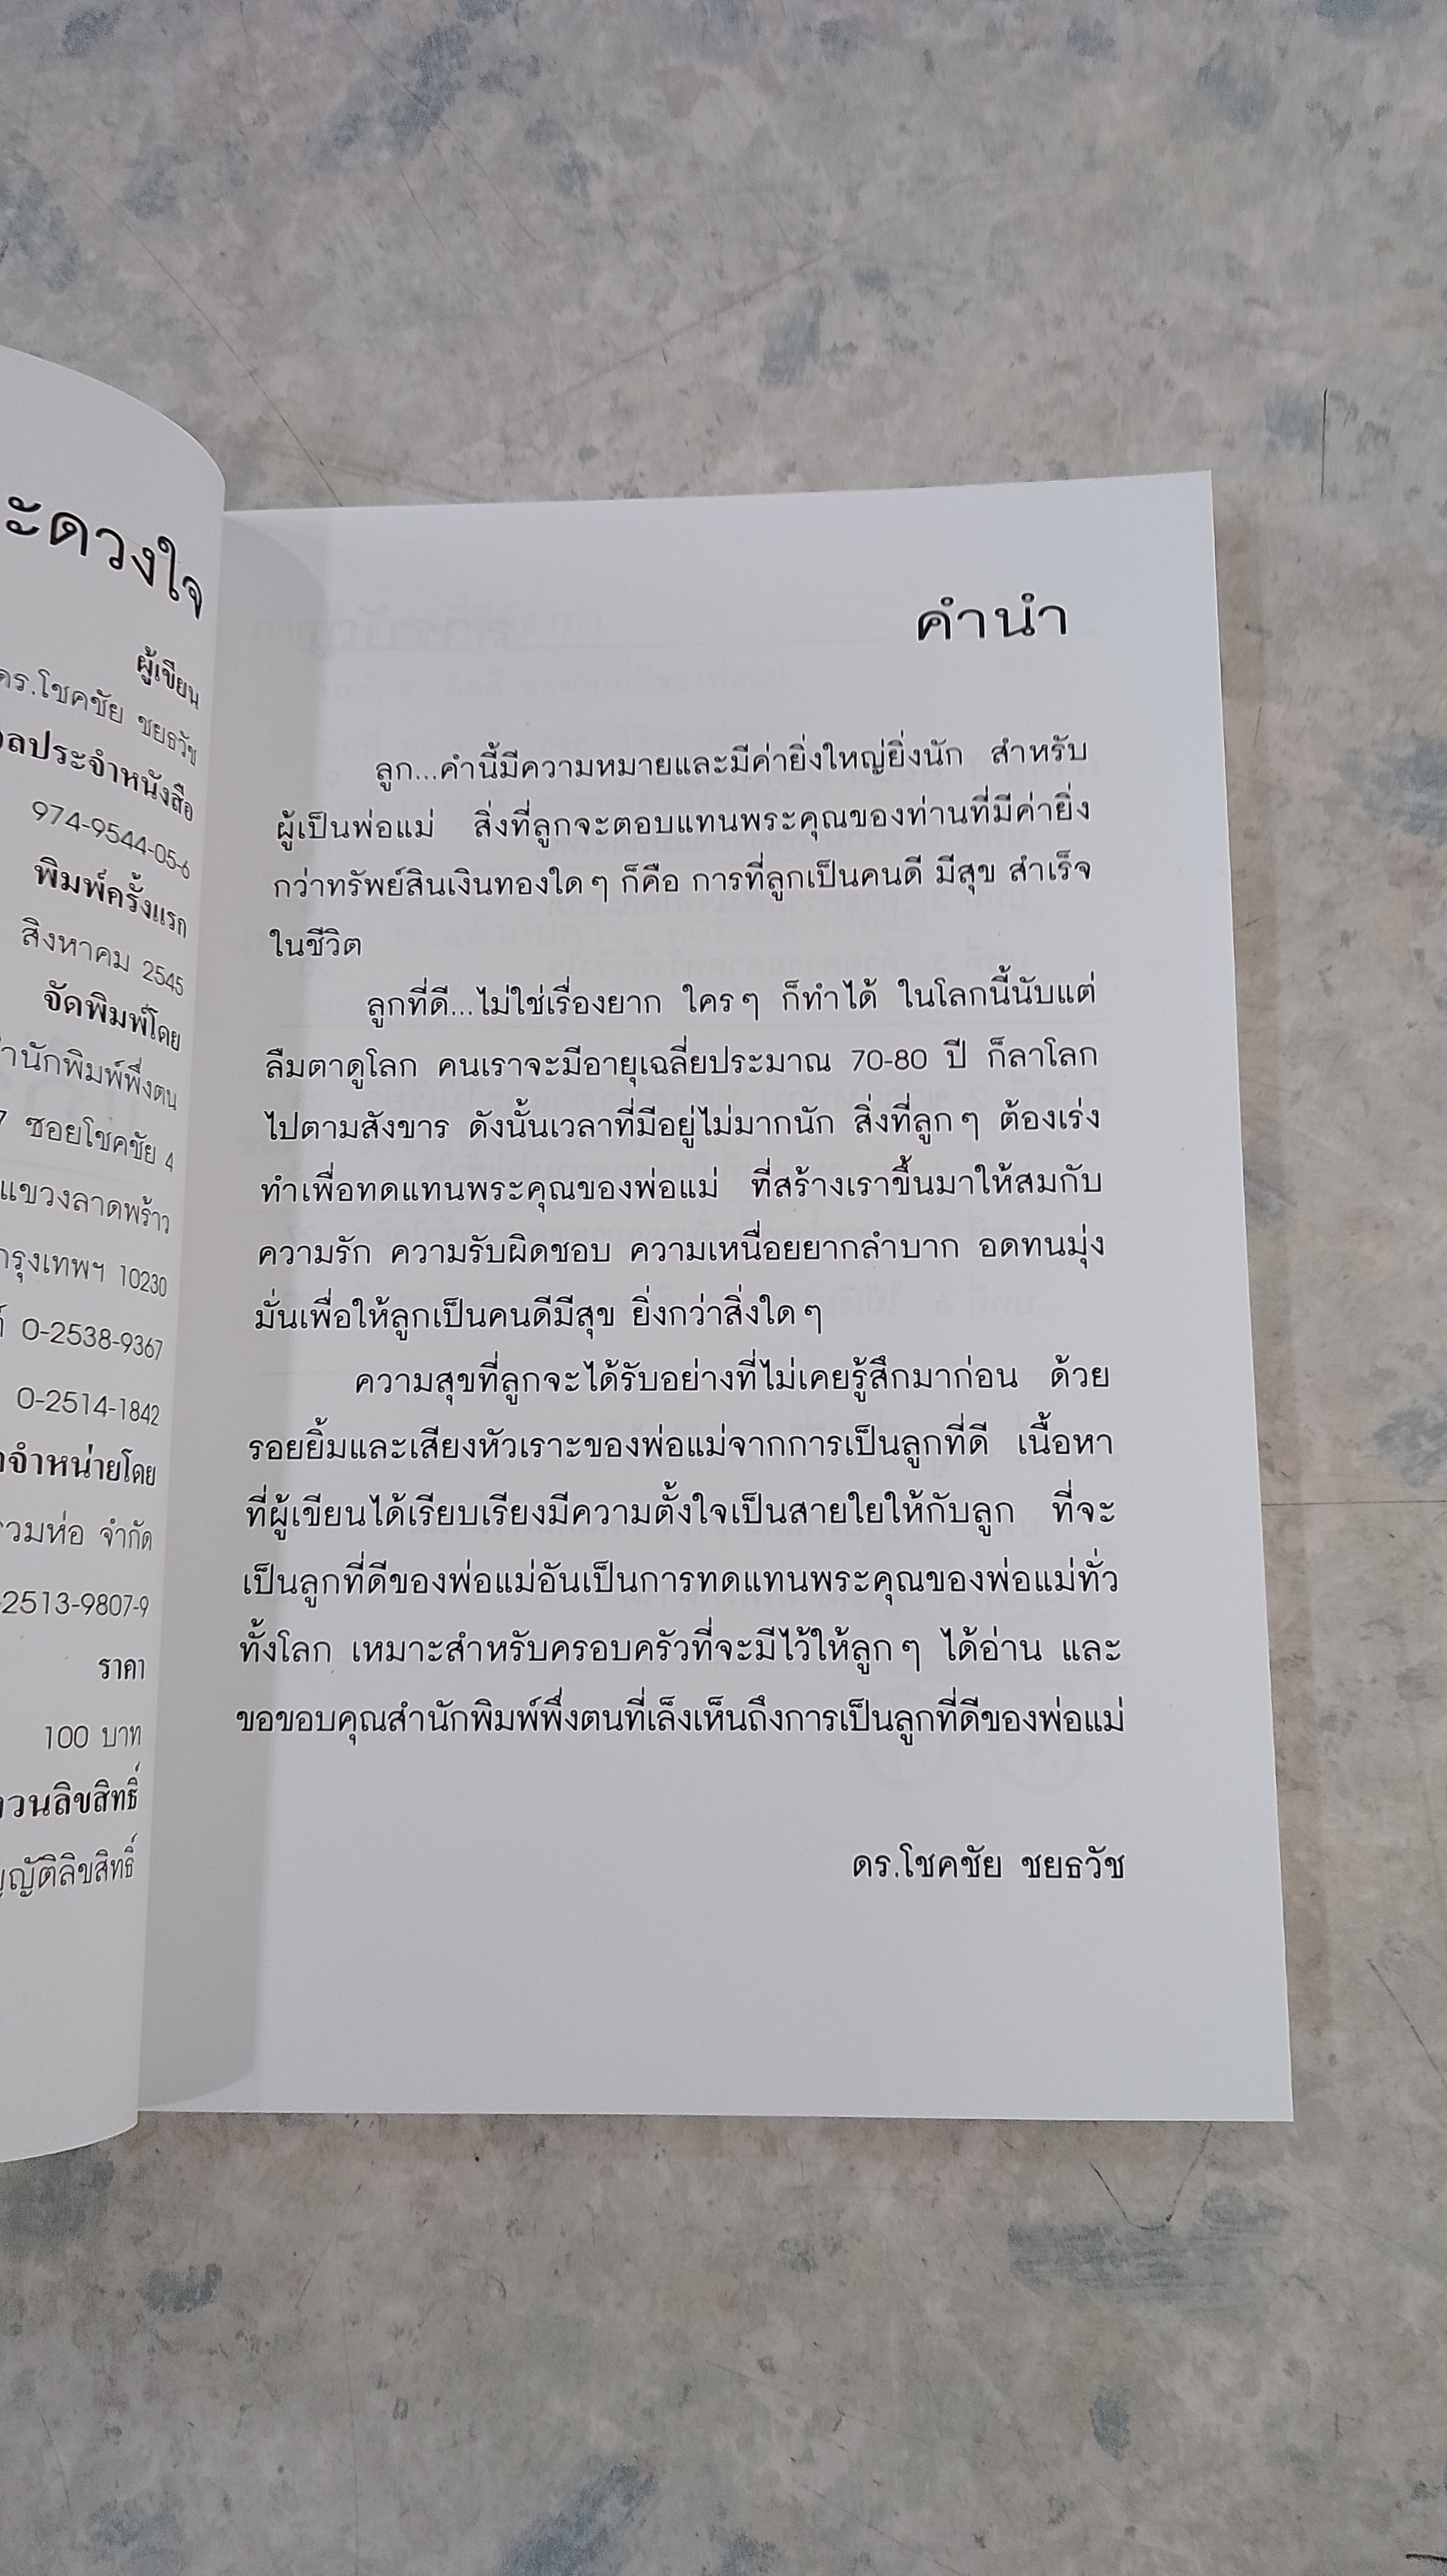 ดวงใจ
ผู้เขียน
ดร.โชคชัย ชยธวัช
ประจำหนังสือ
974-9544-05-6
พิมพ์ครั้งแรก
สิงหาคม 2545
จัดพิมพ์โดย
สำนักพิมพ์พึ่งตน
ซอยโชคชัย 4
แขวงลาดพร้าว
กรุงเทพฯ 10230
0-2538-9367
0-2514-1842
จำหน่ายโดย
จำกัด
2513-9807-9
ราคา
100 บาท
ลิขสิทธิ์
ลิขสิทธิ์
คำนำ
ลูก...คำนี้มีความหมายและมีค่ายิ่งใหญ่ยิ่งนัก สำหรับ
ผู้เป็นพ่อแม่ สิ่งที่ลูกจะตอบแทนพระคุณของท่านที่มีค่ายิ่ง
กว่าทรัพย์สินเงินทองใดๆ ก็คือ การที่ลูกเป็นคนดี มีสุข สำเร็จ
ในชีวิต
ลูกที่ดี...ไม่ใช่เรื่องยาก ใครๆ ก็ทำได้ ในโลกนี้นับแต่
ลืมตาดูโลก คนเราจะมีอายุเฉลี่ยประมาณ 70-80 ปี ก็ลาโลก
ไปตามสังขาร ดังนั้นเวลาที่มีอยู่ไม่มากนัก สิ่งที่ลูกๆ ต้องเร่ง
ทำเพื่อทดแทนพระคุณของพ่อแม่ ที่สร้างเราขึ้นมาให้สมกับ
ความรัก ความรับผิดชอบ ความเหนื่อยยากลำบาก อดทนมุ่ง
มั่นเพื่อให้ลูกเป็นคนดีมีสุข ยิ่งกว่าสิ่งใดๆ
ความสุขที่ลูกจะได้รับอย่างที่ไม่เคยรู้สึกมาก่อน ด้วย
รอยยิ้มและเสียงหัวเราะของพ่อแม่จากการเป็นลูกที่ดี เนื้อหา
ที่ผู้เขียนได้เรียบเรียงมีความตั้งใจเป็นสายใยให้กับลูก ที่จะ
เป็นลูกที่ดีของพ่อแม่อันเป็นการทดแทนพระคุณของพ่อแม่ทั่ว
ทั้งโลก เหมาะสำหรับครอบครัวที่จะมีไว้ให้ลูกๆ ได้อ่าน และ
ขอขอบคุณสำนักพิมพ์พึ่งตนที่เล็งเห็นถึงการเป็นลูกที่ดีของพ่อแม่
ดร.โชคชัย ชยธวัช